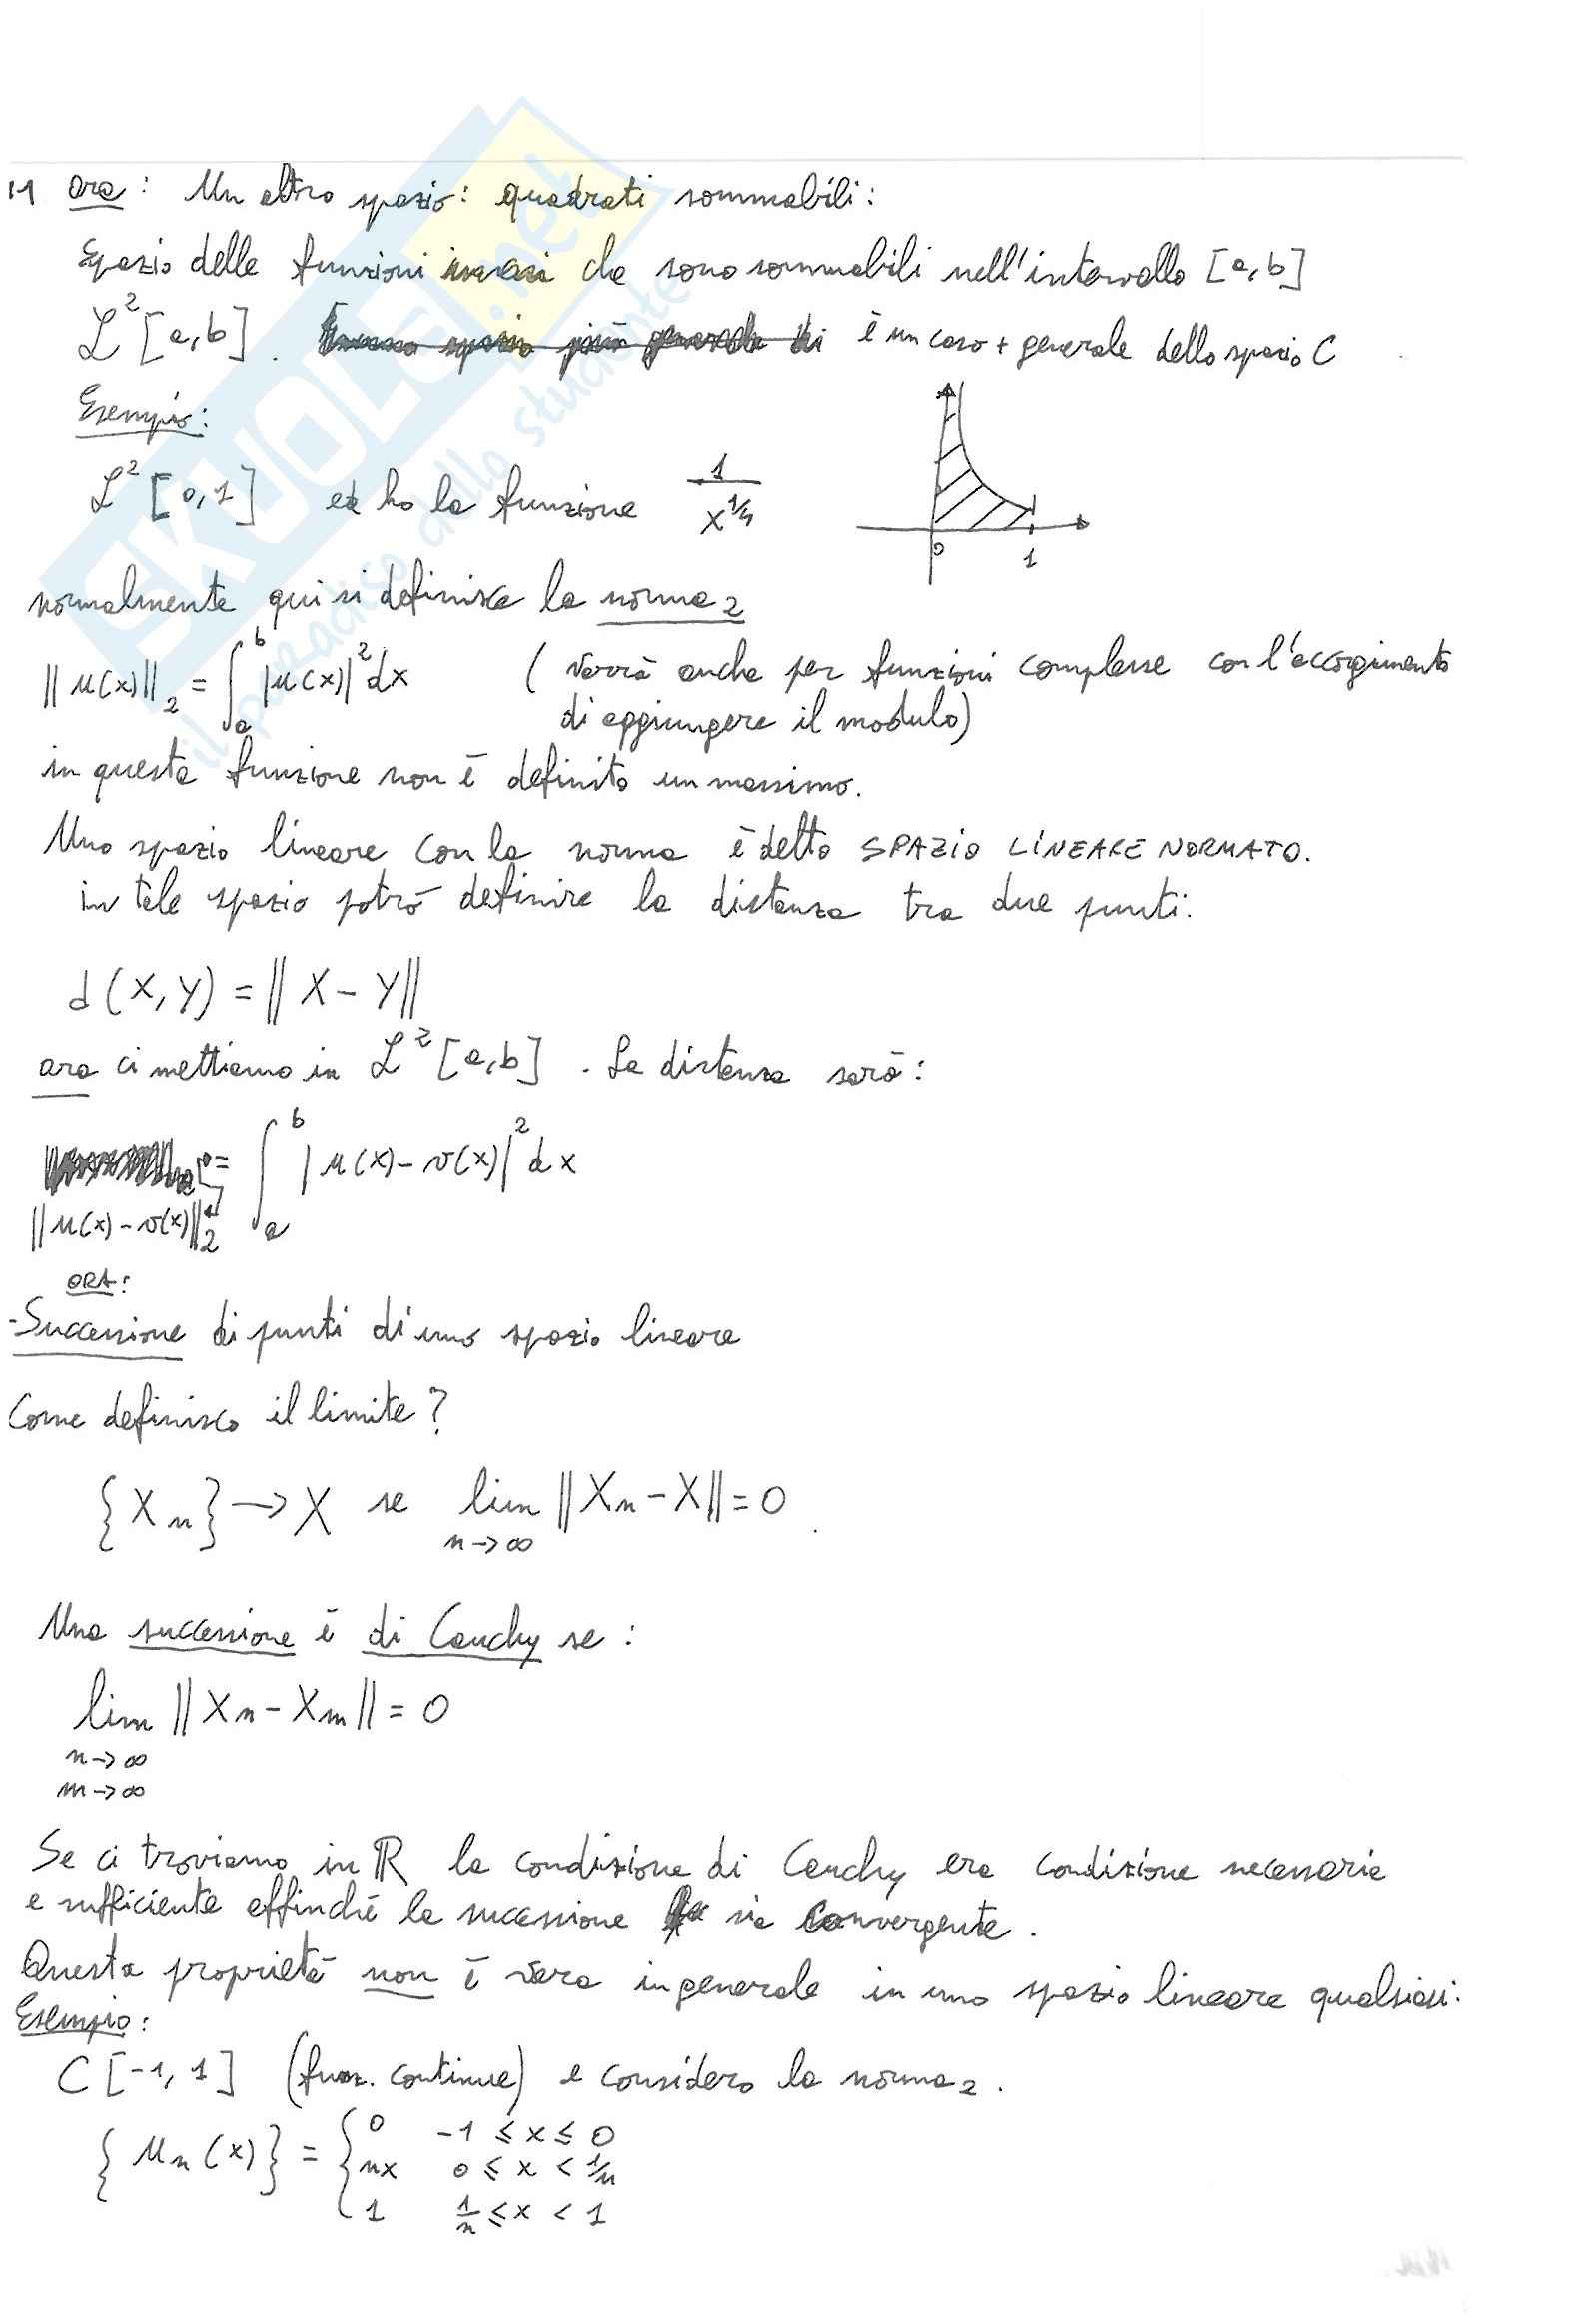 ora: Un altro spazio: quadrati sommabili:
Spazio delle funzioni che sono sommabili nell'intervallo [a,b]
L²[a,b]. è un caso + generale dello spazio C
Esempio:
L²[0,1] ed ho la funzione 1/x^1/4
0 1
normalmente qui si definisce la norma₂
||u(x)||₂ = ∫ₐᵇ |u(x)|² dx (varrà anche per funzioni complesse con l'accorgimento
di aggiungere il modulo)
in questa funzione non è definito un massimo.
Uno spazio lineare con la norma è detto SPAZIO LINEARE NORMATO.
in tale spazio potrò definire la distanza tra due punti:
d(X,Y) = ||X-Y||
ora ci mettiamo in L²[a,b]. La distanza sarà:
= ∫ₐᵇ |u(x)-v(x)|² dx
||u(x)-v(x)||₂
ORA:
-Successione di punti di uno spazio lineare
Come definisco il limite?
{Xn} → X se lim ||Xn - X|| = 0
n→∞
Una successione è di Cauchy se:
lim ||Xn - Xm|| = 0
n→∞
m→∞
Se ci troviamo in ℝ la condizione di Cauchy era condizione necessaria
e sufficiente affinché la successione sia convergente.
Questa proprietà non è vera in generale in uno spazio lineare qualsiasi.
Esempio:
C[-1,1] (funz. continue) e considero la norma₂.
{un(x)} = { 0 -1 ≤ x ≤ 0
nx 0 ≤ x < 1/n
1 1/n ≤ x < 1
SKUOLA.net
il paradiso dello studente